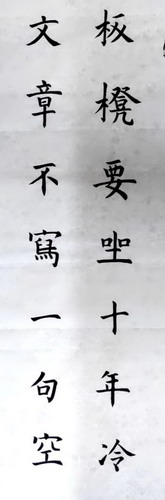 板櫈要坐十年冷
文章不寫一句空